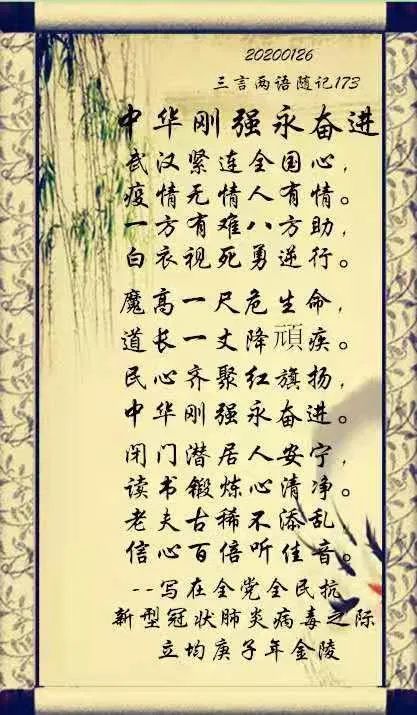 20200126
三言两语随记173
中华刚强永奋进
武汉紧连全国心，
疫情无情人有情。
一方有难八方助，
白衣视死勇逆行。
魔高一尺危生命，
道长一丈降頑疾。
民心齐聚红旗扬，
中华刚强永奋进。
闭门潜居人安宁，
读书锻炼心清净。
老夫古稀不添乱
信心百倍听佳音。
--写在全党全民抗
新型冠状肺炎病毒之际
立均庚子年金陵